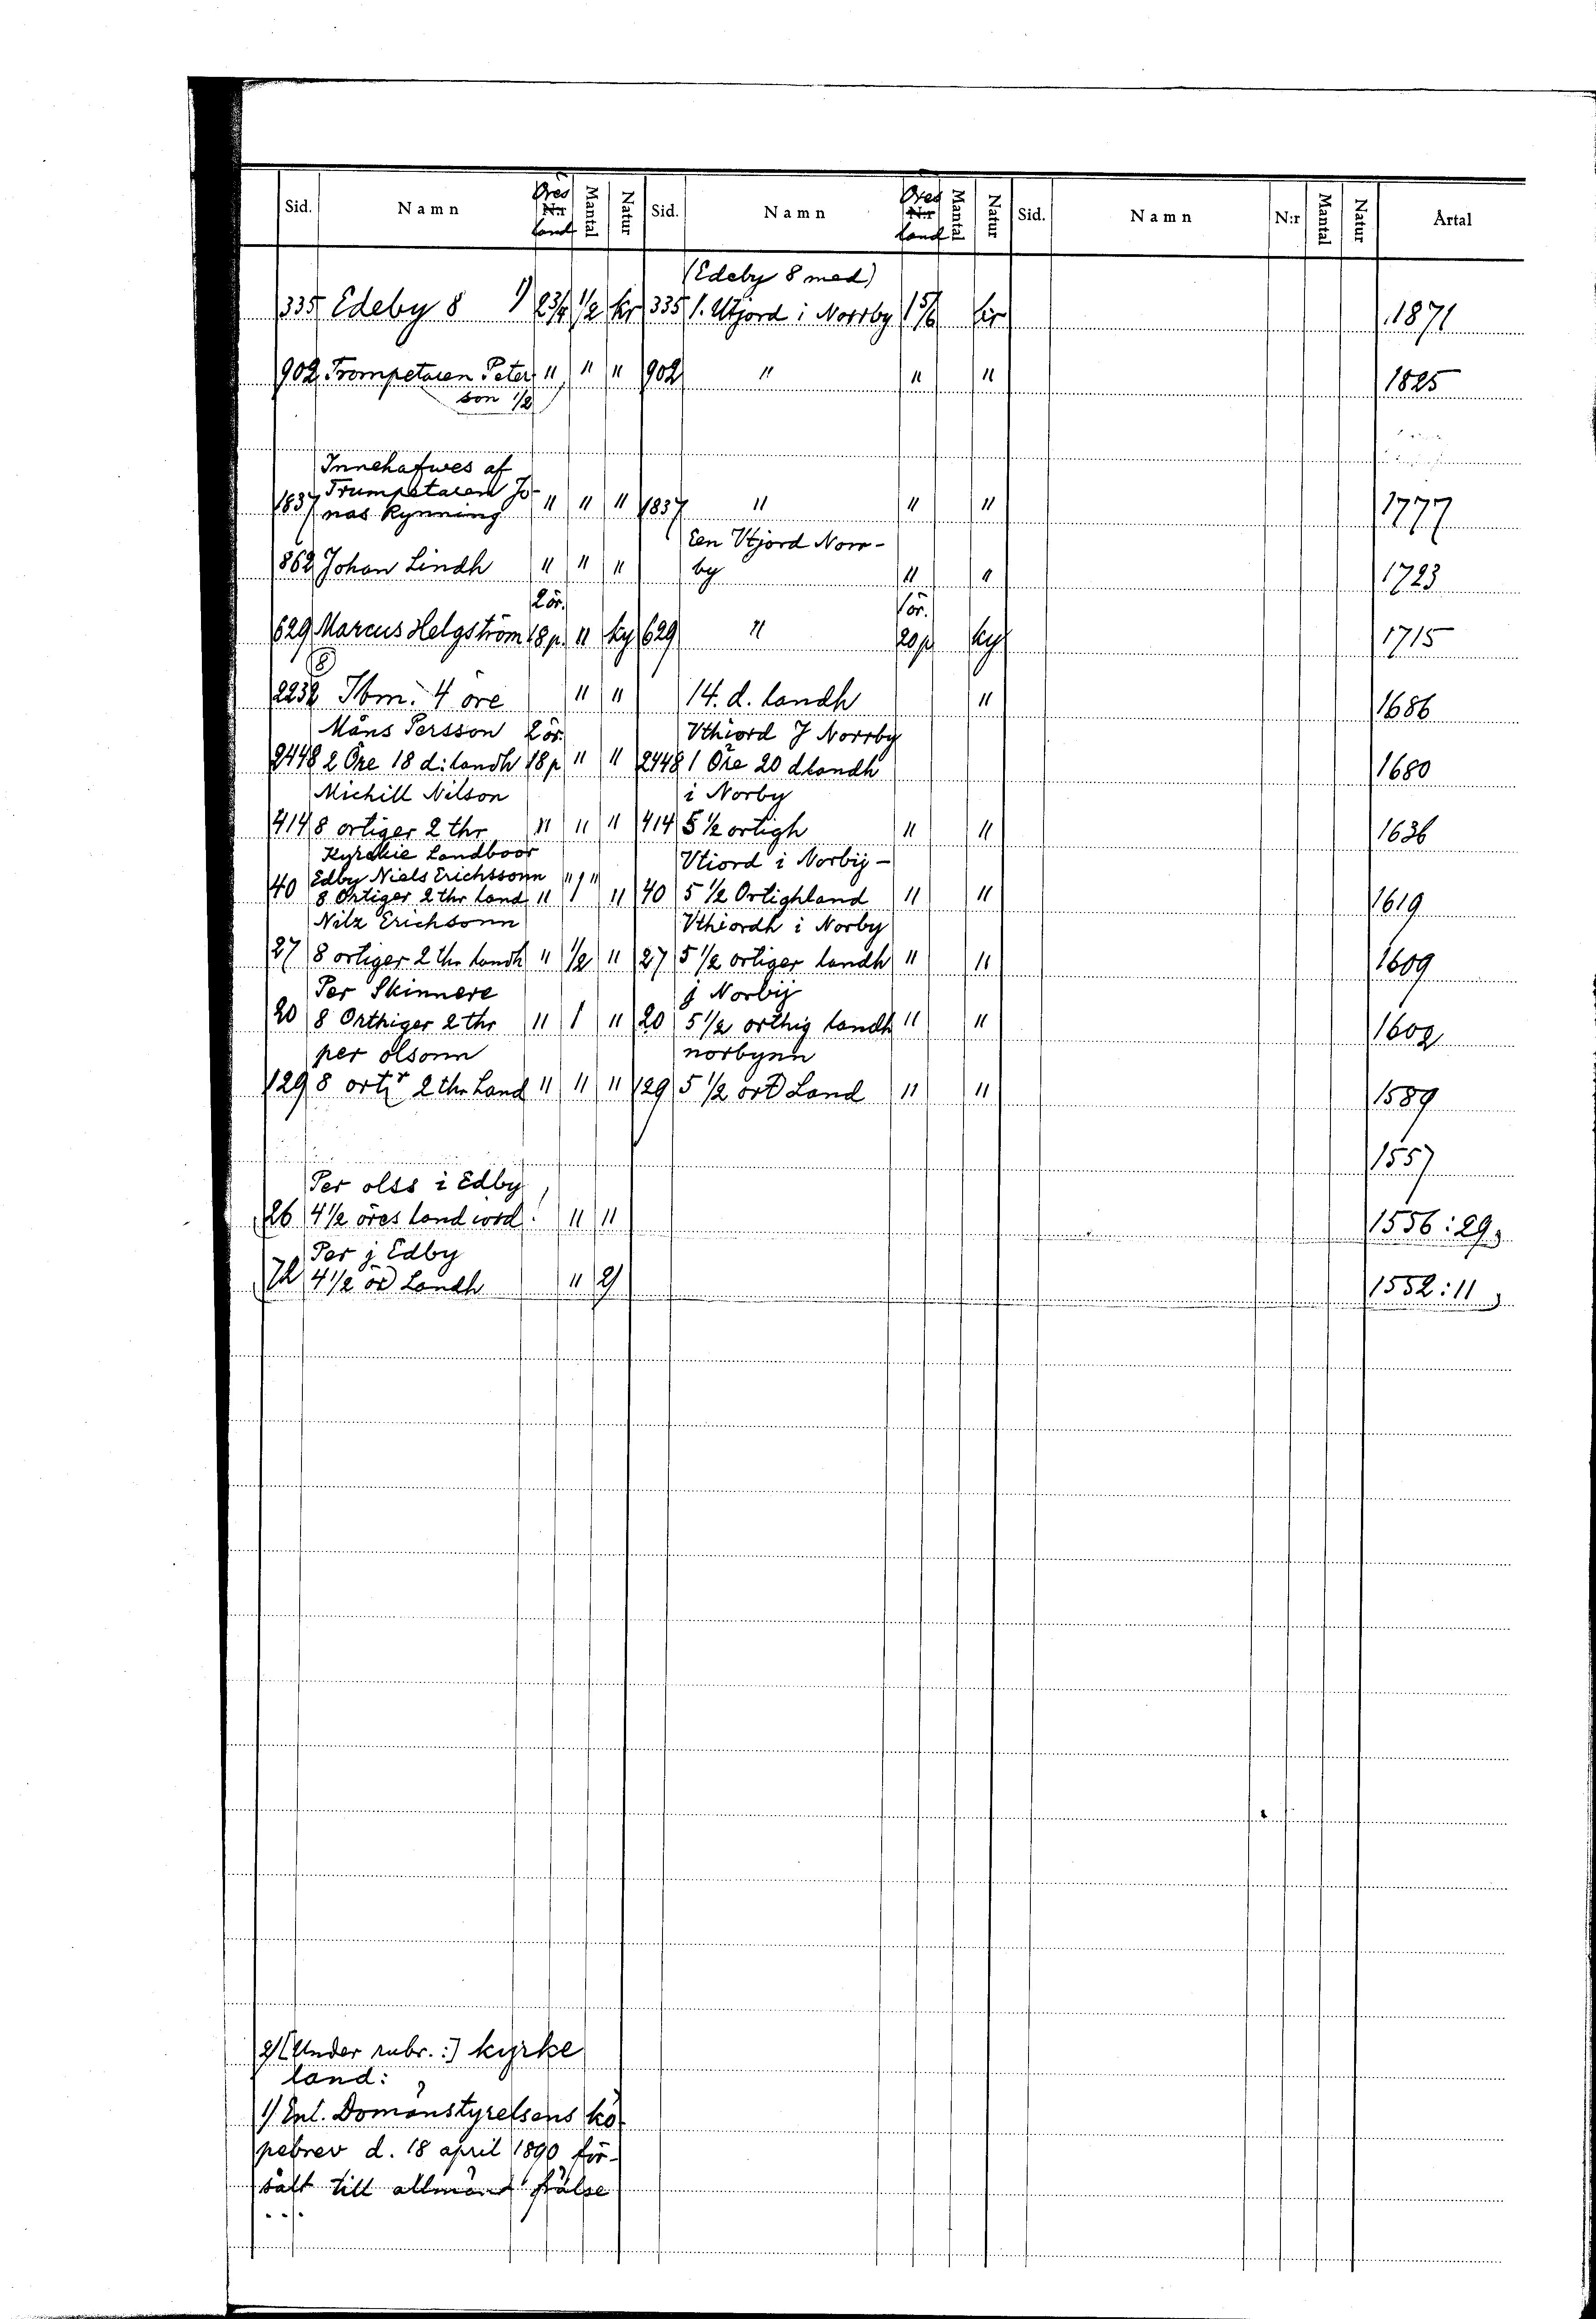 Sid. Namn Öres N:r land Mantal Natur Sid. Namn Öres N:r land Mantal Natur Sid. Namn N:r Mantal Natur Årtal
(Edeby 8 med)
335 Edeby 8 1) 2 3/4 1/2 kr 335 1. Utjord i Norrby 1 5/6 kr 1871
902 Trompetaren Peter " " " 902 " " " 1825
son 1/2
Innehafwes af
Trumpetaren Jo-
1837 nas Rynning " " " 1837 " " " 1777
Een Vtjord Norr-
862 Johan Lindh " " " by " " 1723
2 ör. 1 ör.
629 Marcus Helgström 18 p. " ky 629 " 20 p ky 1715
(8)
2232 Ibm. 4 öre " " 14. d. landh " 1686
Måns Persson 2 ör. Vthiord J Norrby
2448 2 Öre 18 d: landh 18 p " " 2448 1 Öre 20 d landh 1680
Michill Nilson i Norby
414 8 ortiger 2 thr " " " 414 5 1/2 ortigh " " 1636
Kyrckie Landboor Vtiord i Norbij -
Edby Niels Erichssonn " 1 "
40 8 Ortiger 2 thr land " 1 " 40 5 1/2 Ortighland " " 1619
Nilz Erichsonn Vthiordh i Norby
27 8 ortiger 2 thr landh " 1/2 " 27 5 1/2 ortiger landh " " 1609
Per Skinnere j Norbij
20 8 Orthiger 2 thr " 1 " 20 5 1/2 orthig landh " " 1602
per olsonn norbynn
129 8 ort 2 thr Land " " " 129 5 1/2 ort Land " " 1589
1557
Per olss i Edby
26 4 1/2 öres land iord " " 1556:29,
Per j Edby
72 4 1/2 ör Landh " 2) 1552:11,
2) [Under rubr.:] kyrke
land:
1) Enl. Domänstyrelsens kö-
pebrev d. 18 april 1890 för-
sält till allmänt frälse
. . .